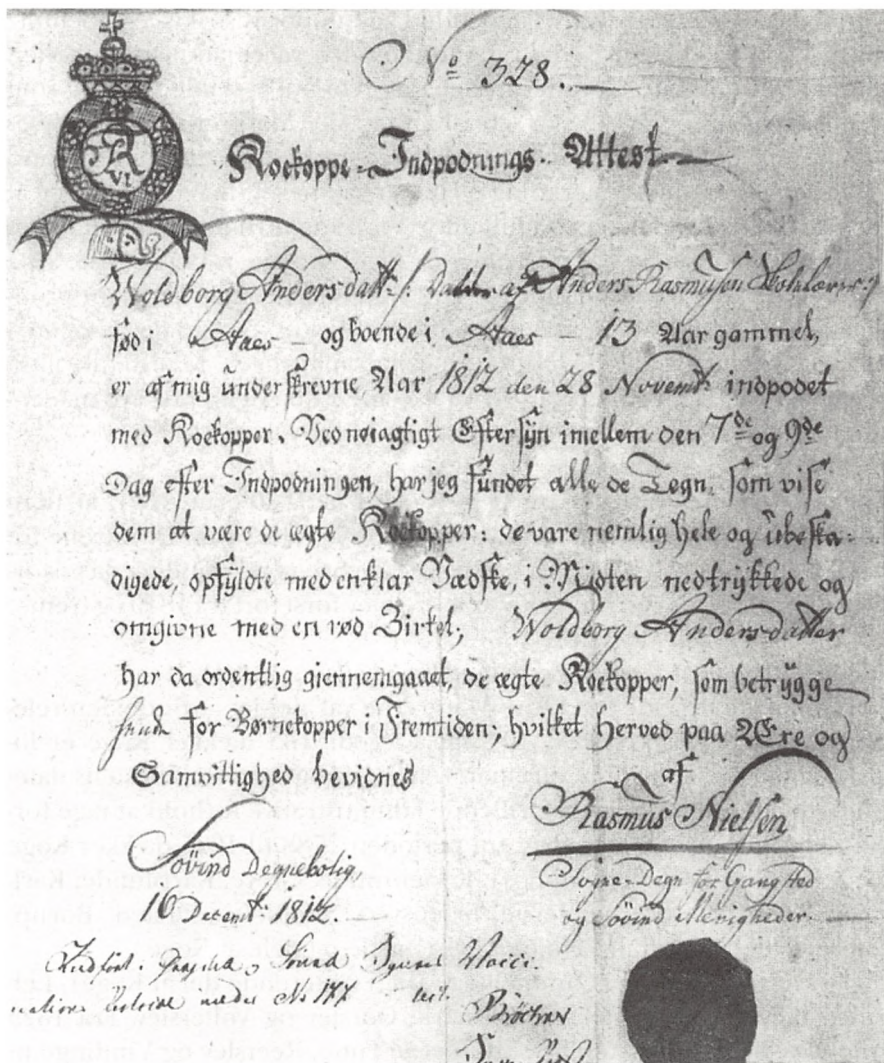 No 328.
Kockoppe-Indpodnings-Attest
VI
Woldborg Andersdatt: /: Datter af Anders Rasmusen Skolelærer :/
fød i Aaes – og boende i Aaes – 13 Aar gammel,
er af mig underskrevne Aar 1812 den 28 Novembr indpodet
med Kockopper. Ved nøiagtigt Eftersyn imellem den 7de og 9de
Dag efter Indpodningen, har jeg fundet alle de Tegn, som vise
dem at være de ægte Kockopper: de vare nemlig hele og ubeska-
digede, opfyldte med en klar Vædske, i Midten nedtrykkede og
omgivne med en rød Zirkel; Woldborg Andersdatter
har da ordentlig giennemgaaet, de ægte Kockopper, som betrygge
hende for Børnekopper i Fremtiden, hvilket herved paa Ære og
Samvittighed bevidnes af
Rasmus Nielsen
Søvind Degnebolig,
16 Decembr 1812.
Sogne-Degn for Gangsted
og Søvind Menigheder
Indført i Gangsted og Søvind Sognes Vacci-
nations Protocol under No 177 test.